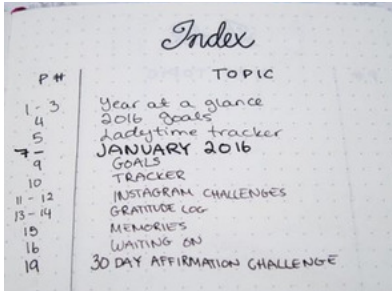 Index
P # TOPIC
1 - 3 Year at a glance
4 2016 goals
5 Ladytime tracker
7 - JANUARY 2016
9 GOALS
10 TRACKER
11 - 12 INSTAGRAM CHALLENGES
13 - 14 GRATITUDE LOG
15 MEMORIES
16 WAITING ON
19 30 DAY AFFIRMATION CHALLENGE